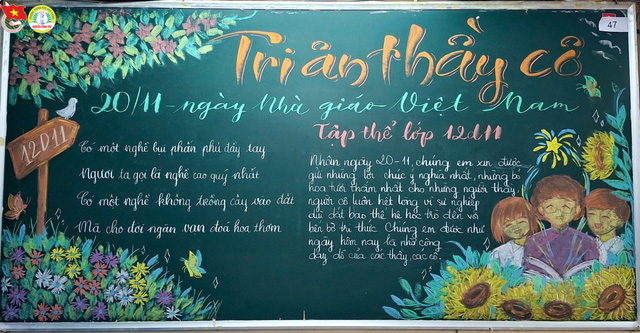 47
Tri ân thầy cô
20/11 - ngày Nhà giáo Việt Nam
Tập thể lớp 12d11
12D11
Có một nghề bụi phấn phủ đầy tay
Người ta gọi là nghề cao quý nhất
Có một nghề không trồng cây vào đất
Mà cho đời ngàn vạn đoá hoa thơm
Nhân ngày 20-11, chúng em xin được
gửi những lời chúc ý nghĩa nhất, những bó
hoa tươi thắm nhất cho những người thầy,
người cô luôn hết lòng vì sự nghiệp
dìu dắt bao thế hệ học trò đến với
bến bờ tri thức. Chúng em được như
ngày hôm nay là nhờ công
dạy dỗ của các thầy, các cô.